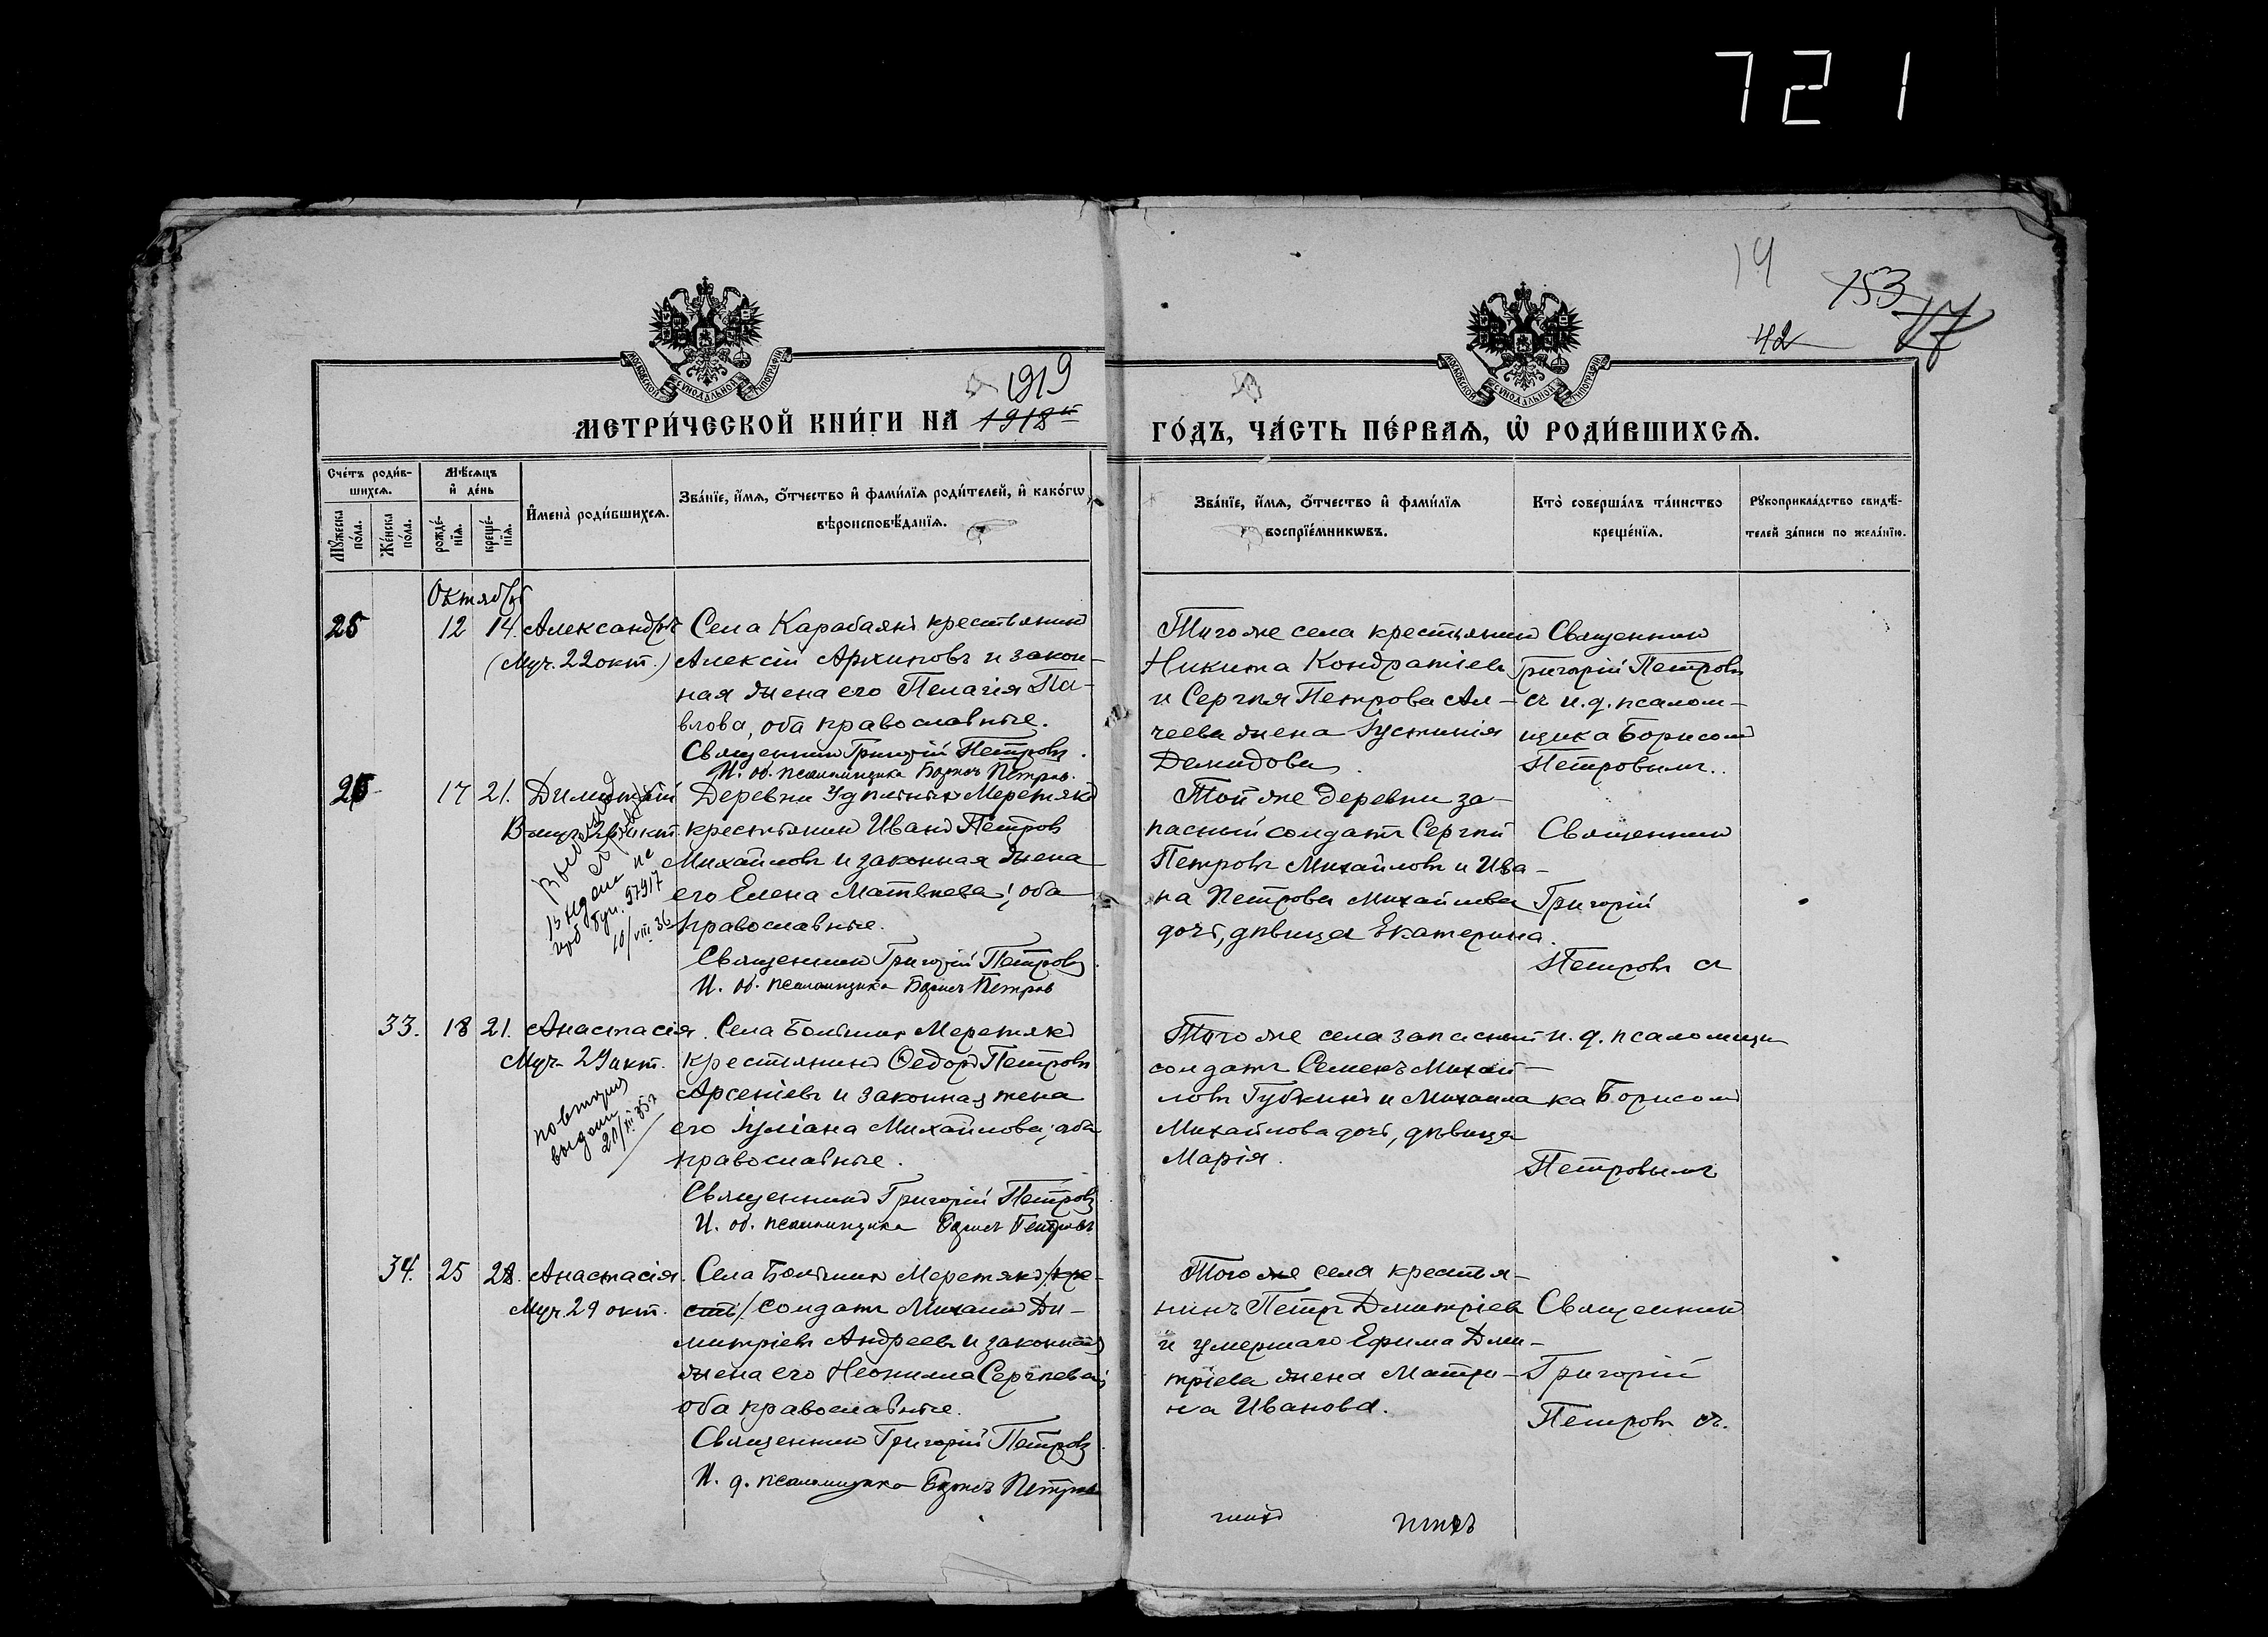 721
14
153
17
42
МОСКОВСКОЙ СѴНОДАЛЬНОЙ ТИПОГРАФІИ
МОСКОВСКОЙ СѴНОДАЛЬНОЙ ТИПОГРАФІИ
1919
МЕТРИ́ЧЕСКОЙ КНИ́ГИ НА 1918й
ГО́ДЪ, ЧА́СТЬ ПЕ́РВАѦ, Ѡ҆ РОДИ́ВШИХСѦ.
Сче́тъ роди́в-
шихсѧ.
Мѣ́сѧцъ
и҆ де́нь
Мꙋ́жеска по́ла.
Же́нска по́ла.
рожде́-нїѧ.
креще́-нїѧ.
И҆мена̀ роди́вшихсѧ.
Зва́нїе, и҆́мѧ, ѻ҆́тчество и҆ фами́лїѧ роди́телей, и҆ како́гѡ
вѣроисповѣ́данїѧ.
Зва́нїе, и҆́мѧ, ѻ҆́тчество и҆ фами́лїѧ
воспрїе́мникѡвъ.
Кто̀ соверша́лъ та́инство
креще́нїѧ.
Рꙋкоприкла́дство свидѣ́-
телей за́писи по жела́нїю.
Октябрь
25 12 14. Александръ
(Муч. 22 окт.)
Села Карабаянъ крестьянинъ
Алексій Архиповъ и закон-
ная жена его Пелагія Па-
влова, оба православные.
Священникъ Григорій Петровъ.
И. об. псаломщика Борисъ Петров.
Того же села крестьянинъ
Никита Кондратіевъ
и Сергѣя Петрова Ал-
чеева жена Іустинія
Демидова.
Священникъ
Григорій Петровъ
съ и. д. псалом-
щика Борисомъ
Петровымъ.
26 17 21. Димитрій
10/VIII 36
Деревни Удѣльныхъ Меретякъ
крестьянинъ Иванъ Петров
Михайловъ и законная жена
его Елена Матвѣева; оба
православные.
Священникъ Григорій Петровъ.
И. об. псаломщика Борисъ Петров
Той же деревни за-
пасный солдатъ Сергѣй
Петровъ Михайловъ и Ива-
на Петрова Михайлова
дочь, дѣвица Екатерина.
Священникъ
Григорій
Петровъ съ
33. 18 21. Анастасія.
Муч. 29 окт.
повторно
выдан
Села Большихъ Меретякъ
крестьянинъ Ѳедоръ Петровъ
Арсеніевъ и законная жена
его Іуліана Михайлова; оба
православные.
Священникъ Григорій Петровъ
И. об. псаломщика Борисъ Петровъ
Того же села запасный
солдатъ Семенъ Михай-
ловъ Губкинъ и Михаила
Михайлова дочь, дѣвица
Марія.
и. д. псаломщи-
ка Борисомъ
Петровымъ
34. 25 28. Анастасія.
Муч. 29 окт.
Села Большихъ Меретякъ /кре-
стьян/ солдатъ Михаилъ Ди-
митріевъ Андреевъ и законная
жена его Неонилла Сергѣева;
оба православные.
Священникъ Григорій Петровъ.
И. д. псаломщика Борисъ Петров
Того же села крестья-
нинъ Петръ Дмитріевъ
и умершаго Ефима Дми-
тріева жена Матро-
на Иванова.
Священникъ
Григорій
Петровъ съ.